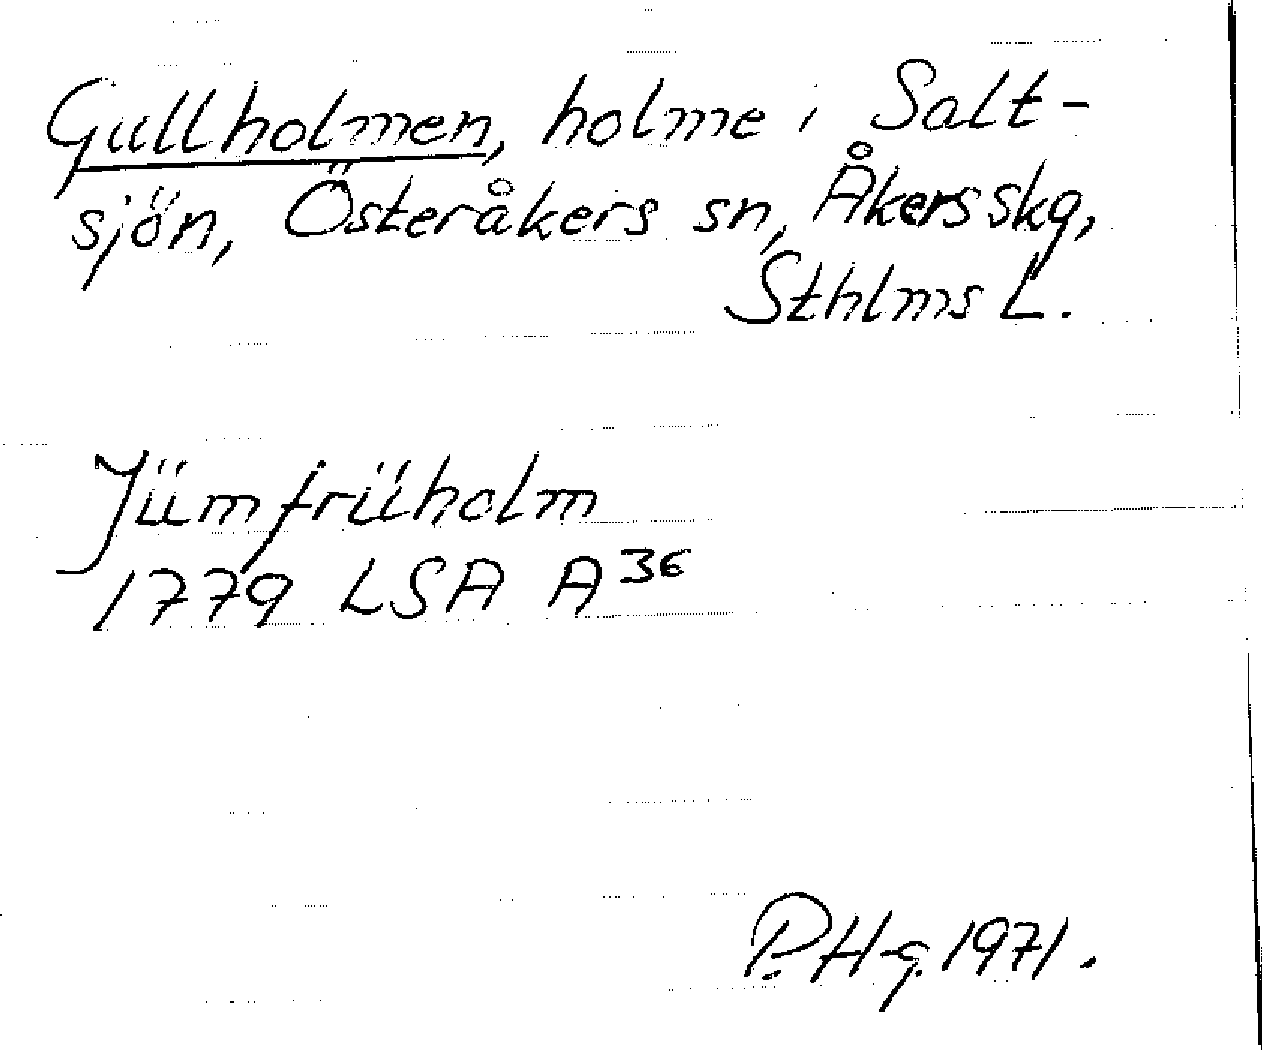 Gullholmen, holme i Salt-
sjön, Österåkers sn, Åkers skg,
Sthlms L.
Jümfrüholm
1779 LSA A³⁶
P. H-g. 1971.